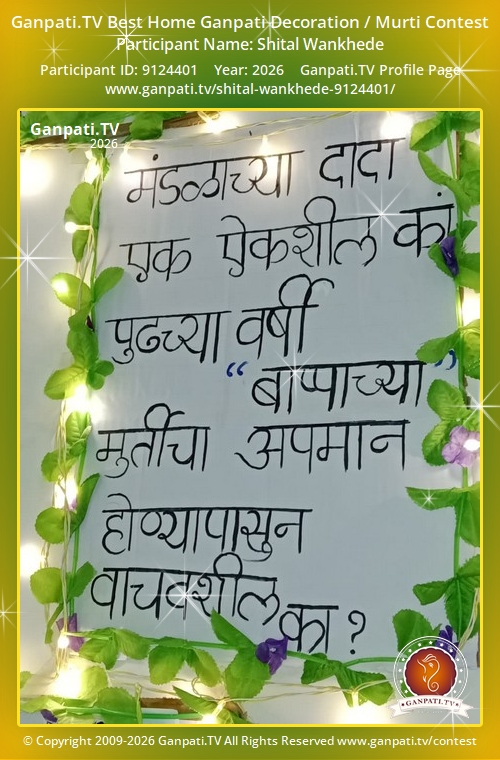 Ganpati.TV Best Home Ganpati Decoration / Murti Contest
Participant Name: Shital Wankhede
Participant ID: 9124401 Year: 2026 Ganpati.TV Profile Page
www.ganpati.tv/shital-wankhede-9124401/
Ganpati.TV
2026
मंडळाच्या दादा
एक ऐकशील कां
पुढच्या वर्षी
“बाप्पाच्या”
मुर्तीचा अपमान
होण्यापासुन
वाचवशील का?
GANPATI.TV
© Copyright 2009-2026 Ganpati.TV All Rights Reserved www.ganpati.tv/contest